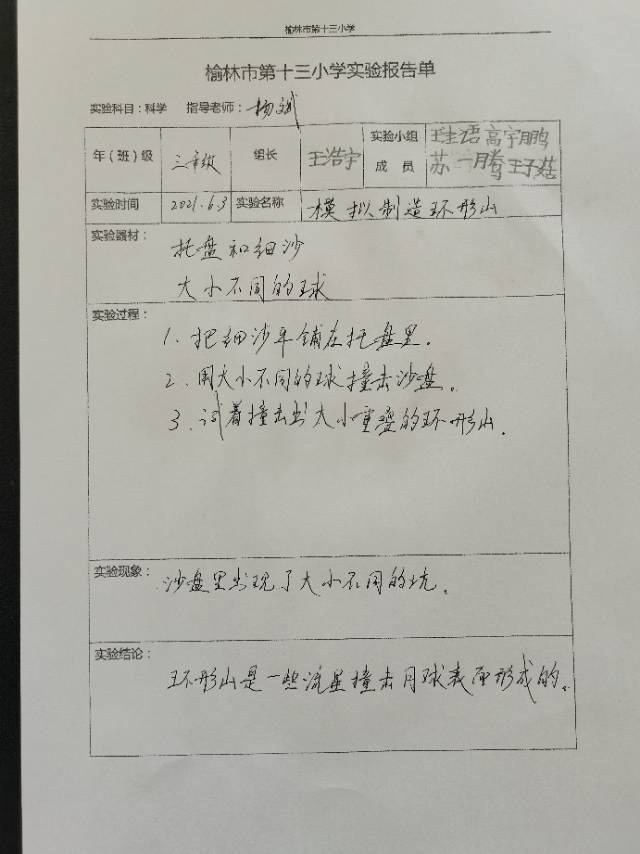 榆林市第十三小学
榆林市第十三小学实验报告单
实验科目：科学 指导老师：杨斌
年（班）级 三年级 组长 王浩宇 实验小组成员 高宇鹏 苏一腾
实验时间 2021.6.3 实验名称 模拟制造环形山
实验器材：
托盘和细沙
大小不同的球
实验过程：
1、把细沙平铺在托盘里.
2、用大小不同的球撞击沙盘。
3、试着撞击出大小重叠的环形山.
实验现象：
沙盘里出现了大小不同的坑。
实验结论：
环形山是一些流星撞击月球表面形成的。